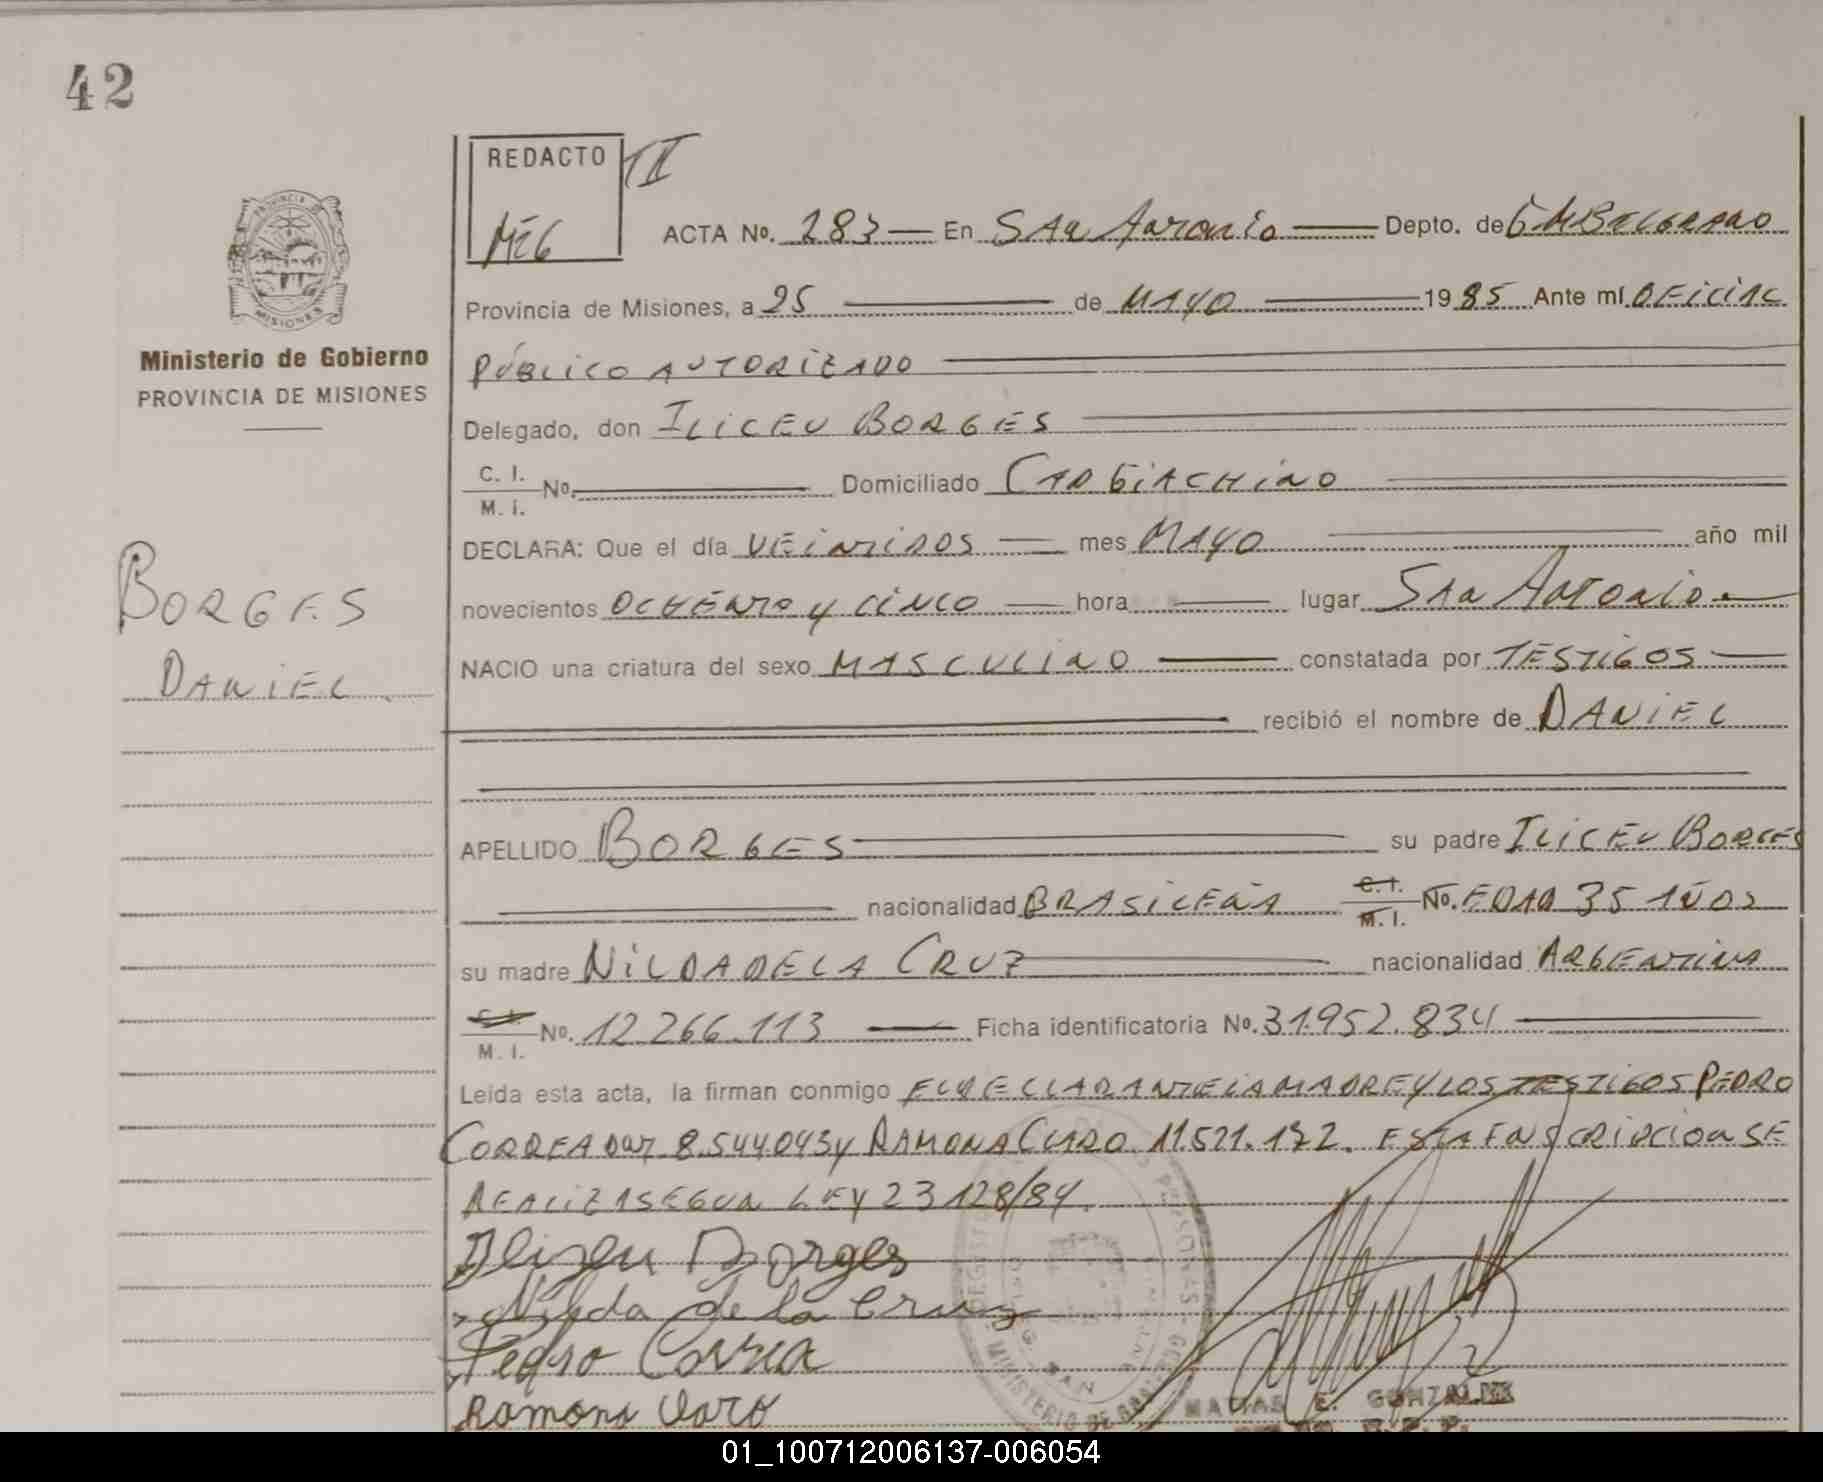 42
REDACTO II
MEG
ACTA No. 283 — En San Antonio — Depto. de G M Belgrano
Provincia de Misiones, a 25 de Mayo 1985 Ante mí Oficial
Público Autorizado
Ministerio de Gobierno
PROVINCIA DE MISIONES
Delegado, don Iliceu Borges
C. I. No. Domiciliado
M. I.
DECLARA: Que el día Veintidos — mes Mayo año mil
novecientos Ochenta y Cinco — hora — lugar San Antonio —
Borges
Daniel
NACIO una criatura del sexo Masculino — constatada por Testigos —
recibió el nombre de Daniel
APELLIDO Borges su padre Iliceu Borges
nacionalidad Brasileña C.I. No. Edad 35 años
M. I.
su madre Nilda de la Cruz nacionalidad Argentina
No. 12.266.113 — Ficha identificatoria No. 31.952.834 —
M. I.
Leída esta acta, la firman conmigo el declarante la madre y los testigos Pedro
Correa DNI 8.544.043 y Ramona Claro 11.521.172. Esta inscripcion se
realiza segun Ley 23128/84.
Borges
Nilda de la Cruz
Pedro Correa
Ramona Claro
MATIAS E. GONZALEZ
01_100712006137-006054